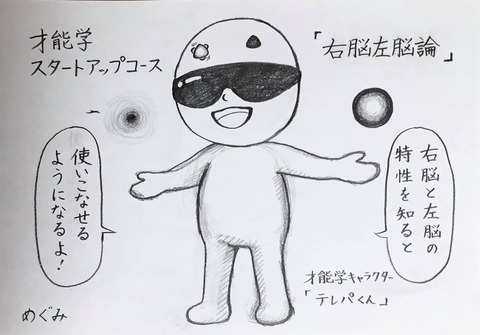 才能学
スタートアップコース
「右脳左脳論」
右脳と左脳の
特性を知ると
使いこなせる
ようになるよ!
才能学キャラクター
「テレパくん」
めぐみ